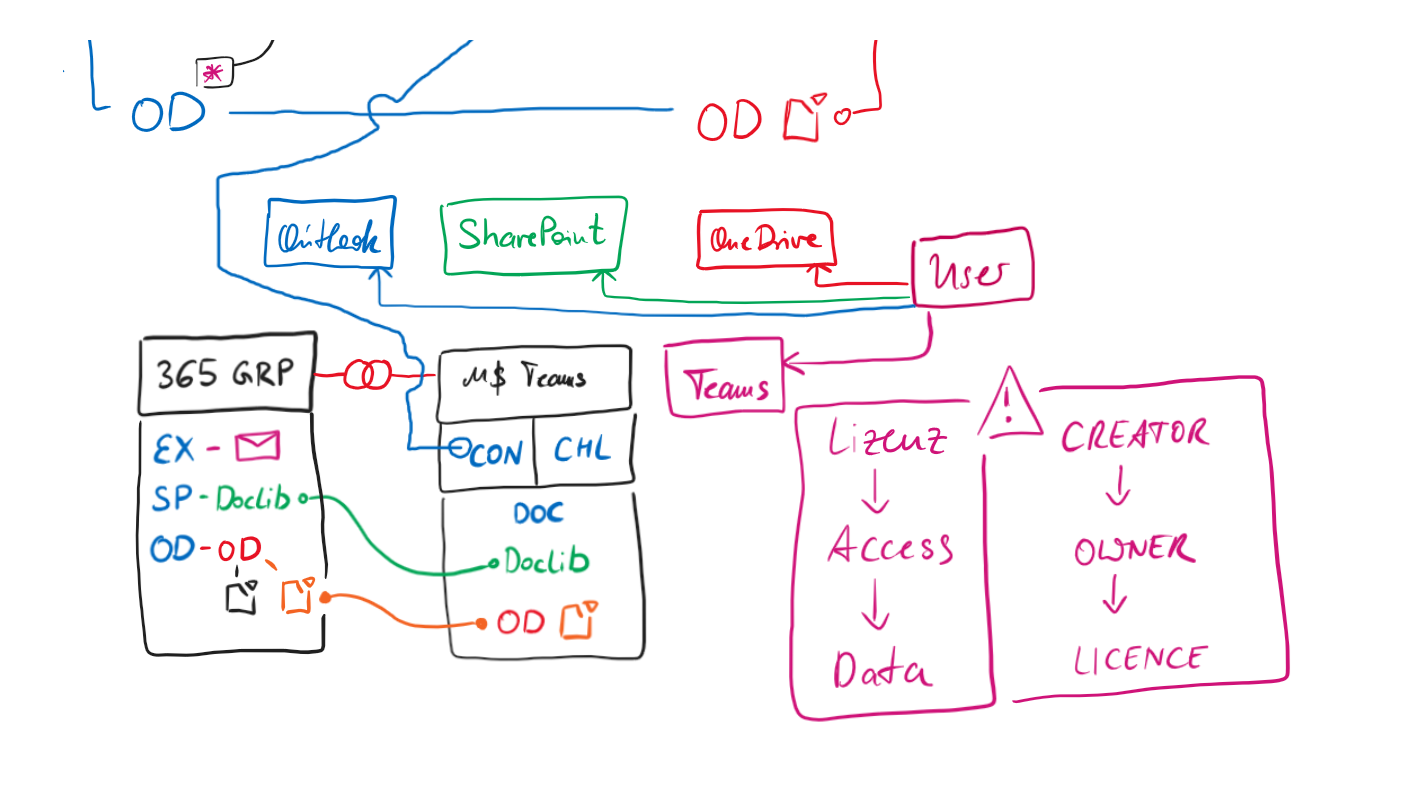 *
OD
OD
Outlook
SharePoint
OneDrive
User
365 GRP
M$ Teams
Teams
EX -
SP - Doclib
OD - OD
CON
CHL
DOC
Doclib
OD
!
Lizenz
Access
Data
CREATOR
OWNER
LICENCE